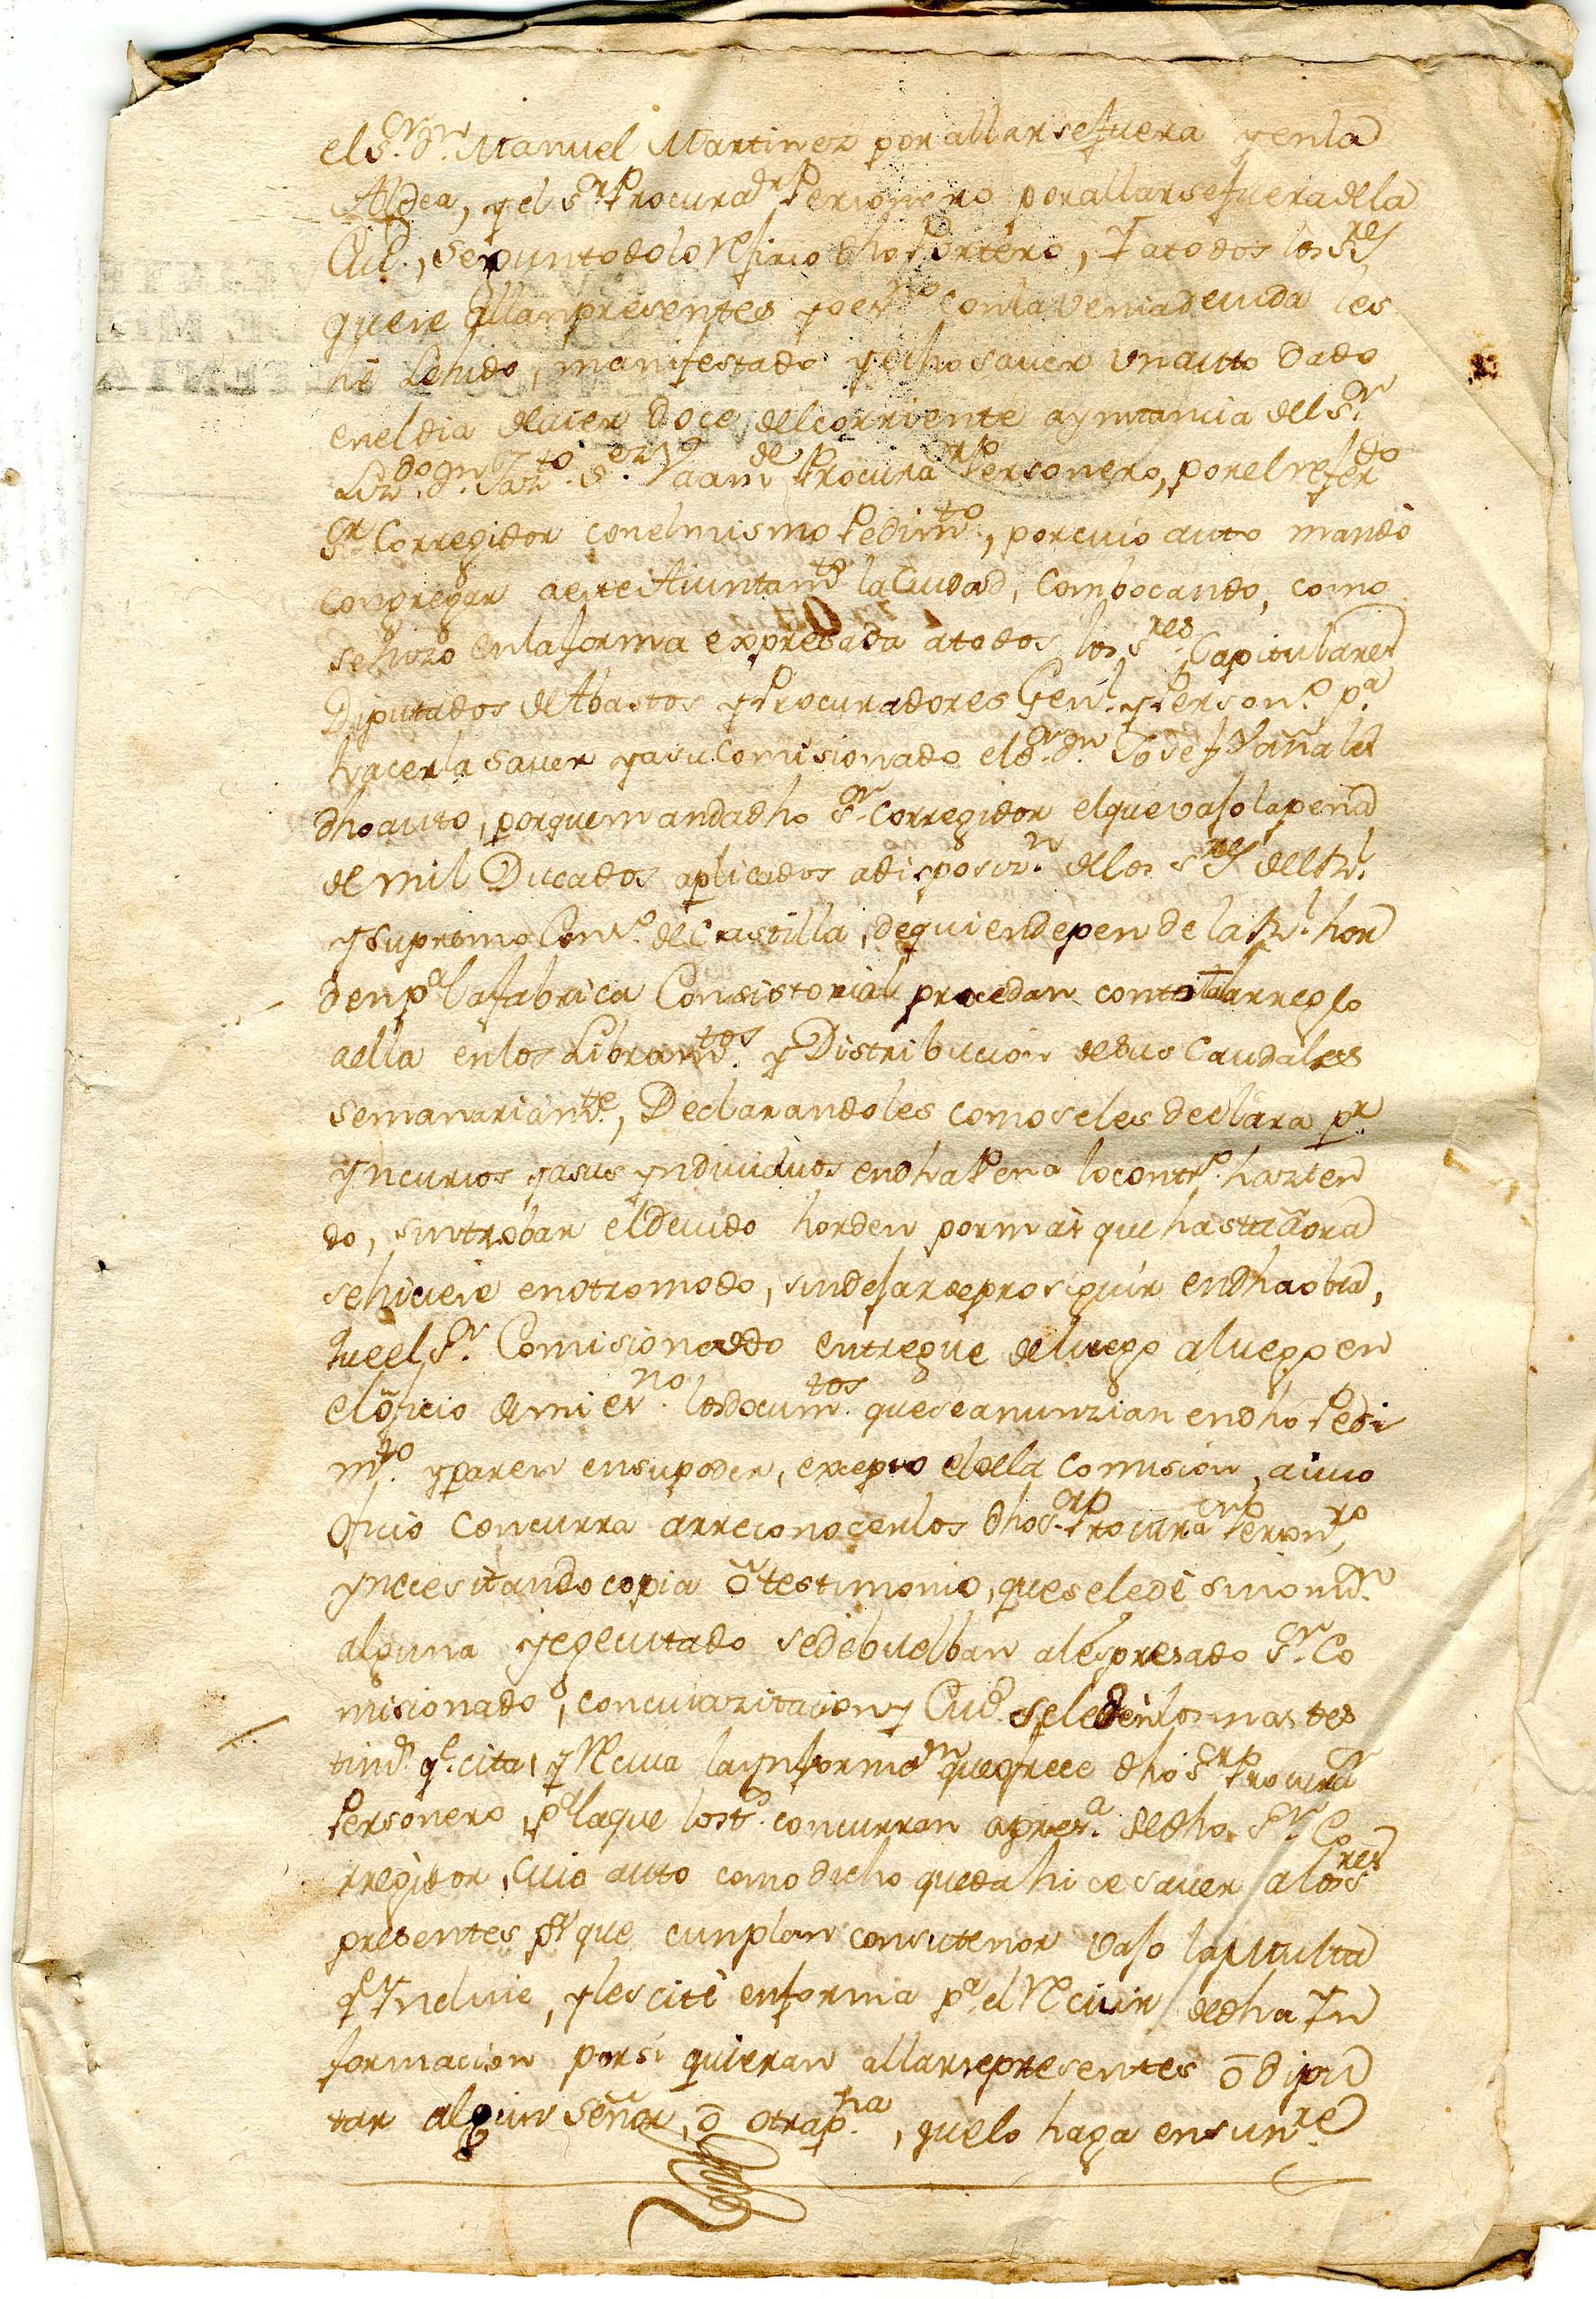 el S.r D.n Manuel Martinez por allarse fuera y en la
Aldea, y el S.r Procurad.r Personero por allarse fuera de la
Ciud., segun todo lo refirio dho Portero, Y a todos los S.res
que se allan presentes yo es.no con la venia devida les
hè Lehido, manifestado y echo saver un auto dado
en el dia de aier doce del corriente a ynstancia del S.r
Liz.do D.n Jaz.to S.ez Vaam.de Procura.r Personero, por el refer.do
S.r Corregidor con el mismo Pedim.to, por cuio auto mandò
congregar a este Aiuntam.to la Ciudad, combocando, como
se hizo en la forma expresada a todos los S.res Capitulares
Diputados de Abastos y Procuradores Gen.l y Person.o p.a
hacerla saver y a su Comisionado el S.r D.n Josef
dho auto, por quien manda dho S.r Corregidor el que vajo la pena
de mil Ducados aplicados a disposiz.n de los S.res del R.l
y Supremo Cons.o de Castilla, de quien depende la R.l hor
den p.a la fabrica Consistorial procedan con total arreglo
a ella en los Libram.tos y Distribucion de sus Caudales
semanariam.te, Declarandoles como se les declara p.r
yncursos y a sus yndividuos en dha Pena lo contr.o hazien
do, sin trobar el devido horden por mas que hasta aora
se hiciese en otro modo, sin dejar de proseguir en dha obra,
que el S.r Comisionado entregue de luego a luego en
el oficio de mi es.no los docum.tos que se anunzian en dho Pedi
m.to y paren en su poder, excepto el de la Comision, a cuio
oficio concurra a rreconocerlos dho S.r Procura.r Person.ro
y necesitando copia ò testimonio, que se le dè sin om.on
alguna y egecutado se debuelban al espresado S.r Co
misionado, con cuia zitacion y Ciud. se le dèn los mas tes
tim.s q.e cita, y reciva la ynformaz.n que ofrece dho S.r Procura.r
Personero, p.a la que los t.s concurran a pres.a de dho S.r Co
rregidor, cuio auto como dicho queda hice saver a los S.res
presentes p.a que cunplan con su tenor vajo la multa
q.e Yncluie, y les citè en forma p.a el recivir de dha Yn
formacion por si quieran allarse presentes ò dipu
tar algun Señor, ò otra p.na, que lo haga en su n.re